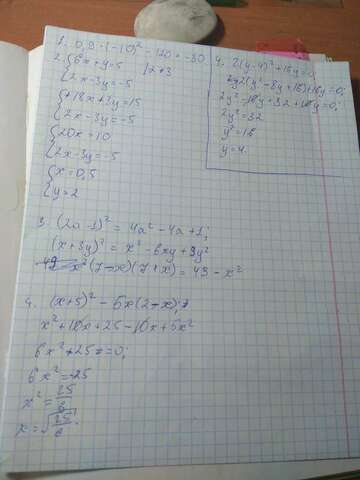 1. 0,9 · (-10)² - 120 = -30
2. {6x + y = 5 |2 * 3
{2x - 3y = -5
{+18x + 3y = 15
{2x - 3y = -5
{20x = 10
{2x - 3y = -5
{x = 0,5
{y = 2
4. 2(y-4)² + 16y = 0
2(y² - 8y + 16) + 16y = 0;
2y² - 16y + 32 + 16y = 0;
2y² = 32
y² = 16
y = 4.
3. (2a-1)² = 4a² - 4a + 1;
(x + 3y)² = x² - 6xy + 9y²
(7-x)(7+x) = 49 - x²
4. (x+5)² - 5x(2-x);
x² + 10x + 25 - 10x + 5x²
6x² + 25 = 0;
6x² = -25
x² = 25/6
x = √25/6.